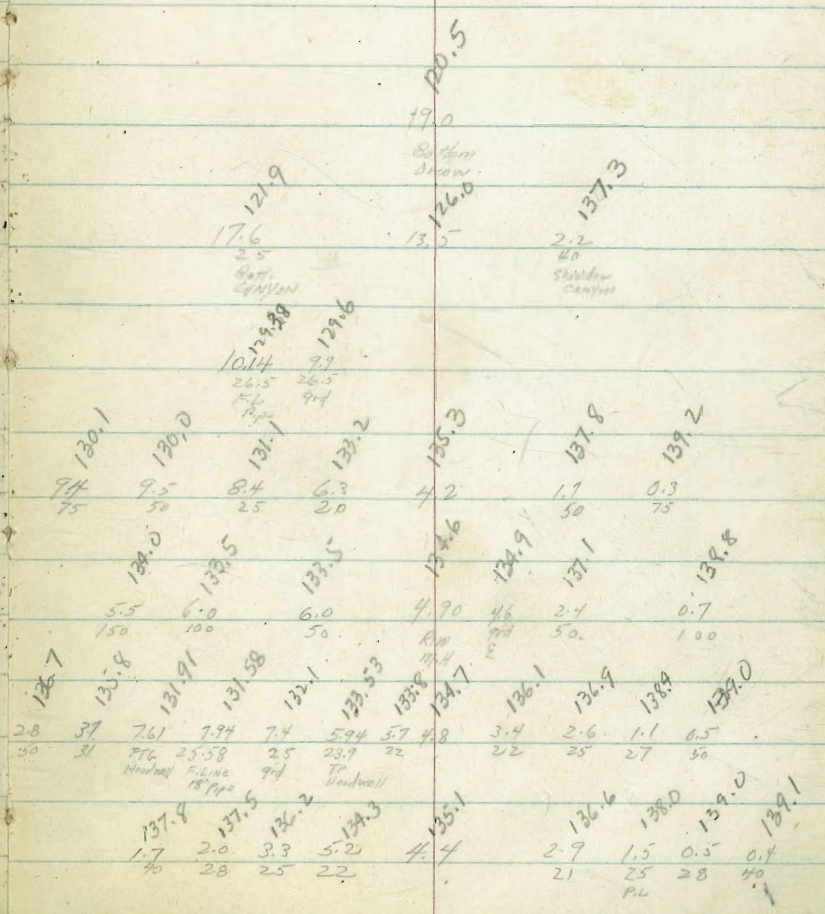 120.5
19.0
Bottom
Draw
121.9 126.0 137.3
17.6 13.5 2.2
25 40
Bott. Shoulder
CANYON CANYON
129.38 129.6
10.14 9.9
26.5 26.5
F.L. grd
Pipe
130.1 130.0 131.1 133.2 135.3 137.8 139.2
9.4 9.5 8.4 6.3 4.2 1.7 0.3
75 50 25 20 50 75
134.0 133.5 133.5 134.6 134.9 137.1 138.8
5.5 6.0 6.0 4.90 4.6 2.4 0.7
150 100 50 Rim grd 50 100
M.H
136.7 135.8 131.91 131.58 132.1 133.53 133.8 134.7 136.1 136.9 138.4 139.0
2.8 3.7 7.61 7.94 7.4 5.94 5.7 4.8 3.4 2.6 1.1 0.5
50 31 FTG 25.58 25 23.9 22 22 25 27 50
Headwall F.Line grd TP
18" Pipe Headwall
137.8 137.5 136.2 134.3 135.1 136.6 138.0 139.0 139.1
1.7 2.0 3.3 5.2 4.4 2.9 1.5 0.5 0.4
40 28 25 22 21 25 28 40
P.L